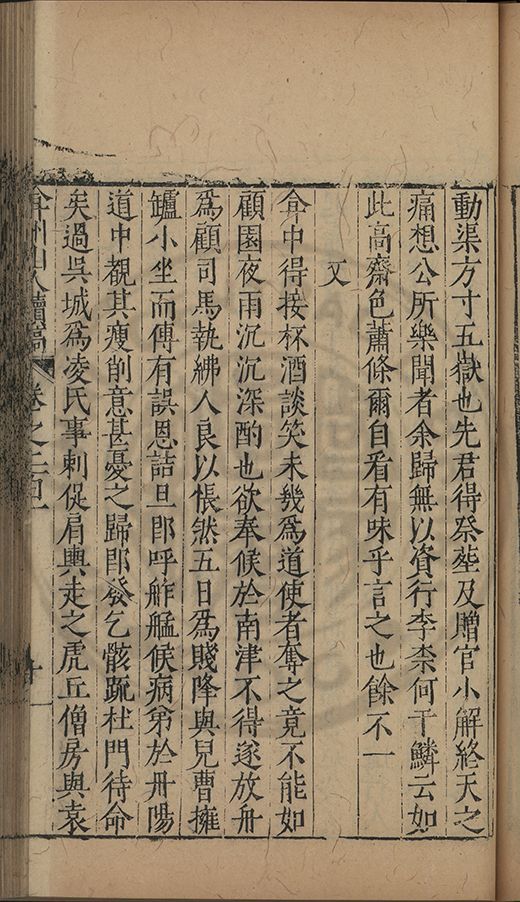 動渠方寸五嶽也先君得祭塟及贈官小解終天之
痛想公所樂聞者余歸無以資行李柰何于鱗云如
此高齋色蕭條爾自看有味乎言之也餘不一
又
弇中得接杯酒談笑未幾爲道使者奪之竟不能如
顧園夜雨沉沉深酌也欲奉候於南津不得遂放舟
爲顧司馬執紼人良以悵然五日爲賤降與兒曹擁
鱸小坐而傳有誤恩詰旦即呼舴艋候病弟於丹陽
道中覩其瘦削意甚憂之歸即發乞骸疏杜門待命
矣過吳城爲凌氏事刺促肩輿走之虎丘僧房與袁
弇州山人續稿 卷之二百一
十一